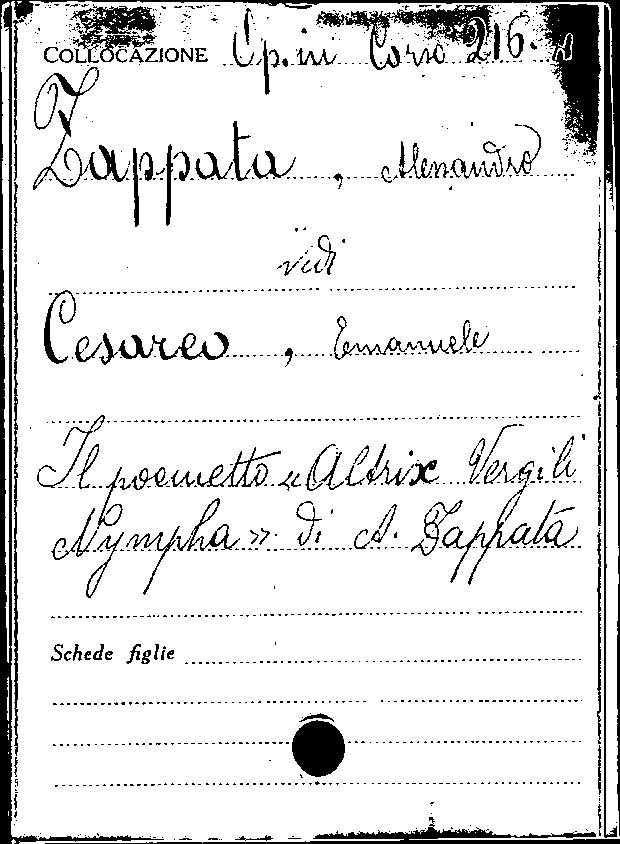 COLLOCAZIONE Op. in Corso 216.
Zappata, Alessandro
vedi
Cesareo, Emanuele
Il poemetto «Altrix Vergili
Nympha» di A. Zappata
Schede figlie